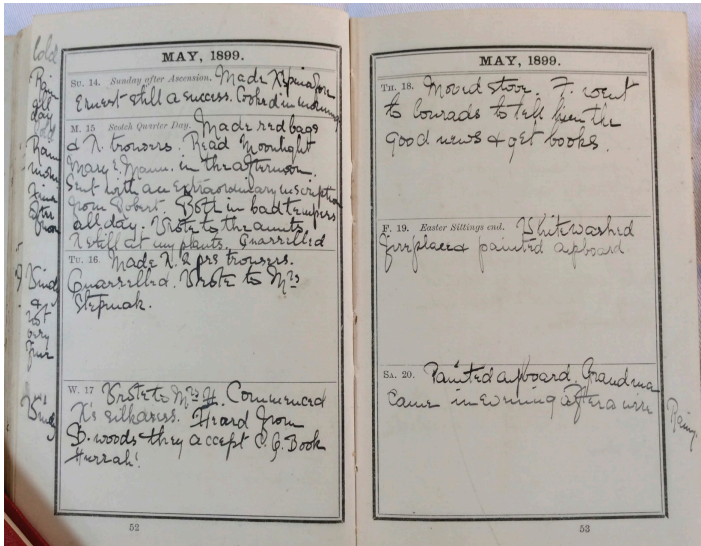 Cold
Rain
all
day
MAY, 1899.
SU. 14. Sunday after Ascension. Made X pinafore
Ernest still a success. Cooked in morning
M. 15 Scotch Quarter Day. Made red bags
& X. trousers. Read Moonlight
Mary E. Mann. in the afternoon.
Sent with an extraordinary inscription
from Robert. Both in bad tempers
all day. Wrote to the aunts.
X still at my plants. Quarrelled
TU. 16. Made X. 2 prs trousers.
Quarrelled. Wrote to Mrs
Stepniak.
Wind
&
not
very
fine
W. 17 Wrote to Mrs H. Commenced
X's silk dress. Heard from
B.woods - they accept C. G. Book
Hurrah!
Windy
52
MAY, 1899.
TH. 18. Moved stove. F. went
to Conrads to tell him the
good news & get books.
F. 19. Easter Sittings end. Whitewashed
fireplace & painted cupboard
SA. 20. Painted cupboard. Grandma
came in evening after a wire
Rainy
53